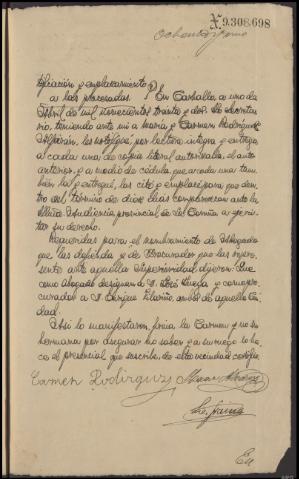 N.9.308.698
Ochenta y uno
a las procesadas. En Carballo, a uno de
Abril de mil novecientos treinta y dos. Yo Secreta
rio, teniendo ante mi a María y Carmen Rodríguez
les notifiqué por lectura íntegra y entrega
a cada una de copia literal autorizada, el auto
anterior, y a medio de cédula que a cada una tam
bién la entregué, las cité y emplacé para que den
tro del término de diez días comparezcan ante la
Audiencia provincial de La Coruña a ejerci
tar su derecho.
Requeridas para el nombramiento de Abogado
que las defienda y de Procurador que las repre
sente ante aquella Superioridad dijeron: Que
como Abogado designan a D. José y como pro
curador a D. Enrique ambos de aquella Ciu
dad.
Así lo manifestaron, firma la Carmen y no su
hermana por asegurar no saber y a su ruego lo ha
ce el presencial que suscribe, de esta vecindad certifico.
Carmen Rodríguez
En